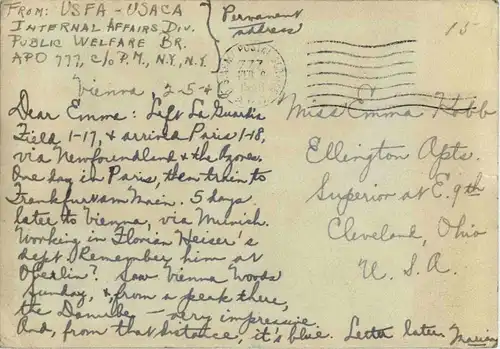 FROM: USFA - USACA
INTERNAL AFFAIRS DIV.
PUBLIC WELFARE BR.
APO 777, c/o P.M., N.Y., N.Y.
Permanent
address
15
777
Vienna, 2-5-4
Dear Emma: Left La Guardia
Field 1-17, & arrived Paris 1-18,
via Newfoundland & the Azores.
One day in Paris, then train to
Frankfurt am Main. 5 days
later to Vienna, via Munich.
Working in Florian Heiser's
dept. (Remember him at
Oberlin? Saw Vienna Woods
Sunday, &, from a peak there,
the Danube — very impressive.
And, from that distance, it's blue. Letter later Marian
Miss Emma Kobb
Ellington Apts.
Superior at E. 9th
Cleveland, Ohio
U.S.A.